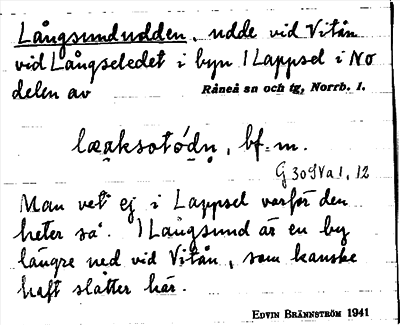 Långsundudden, udde vid Vitån
vid Långseledet i byn 1 Lappsel i NO
delen av Råneå sn och tg, Norrb. l.
læaksotó́dn, bf. m.
G 30 9Va 1, 12
Man vet ej i Lappsel varför den
heter så. 1 Långsund är en by
längre ned vid Vitån, som kanske
haft slåtter här.
EDVIN BRÄNNSTRÖM 1941